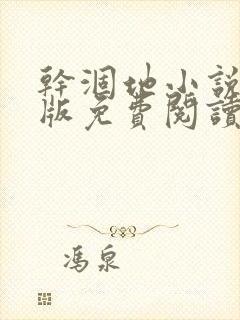 幹涸地小說
版免費閱讀
馮泉